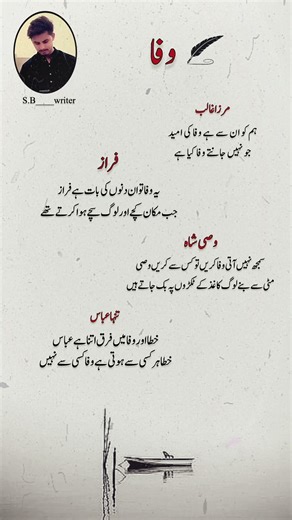 S.B____writer
وفا
مرزا غالب
ہم کو ان سے ہے وفا کی امید
جو نہیں جانتے وفا کیا ہے
فراز
یہ وفا تو ان دنوں کی بات ہے فراز
جب مکان کچے اور لوگ سچے ہوا کرتے تھے
وصی شاہ
سمجھ نہیں آتی وفا کریں تو کس سے کریں وصی
مٹی سے بنے لوگ کاغذ کے ٹکڑوں پہ بک جاتے ہیں
تنہا عباس
خطا اور وفا میں فرق اتنا ہے عباس
خطا ہر کسی سے ہوتی ہے وفا کسی سے نہیں